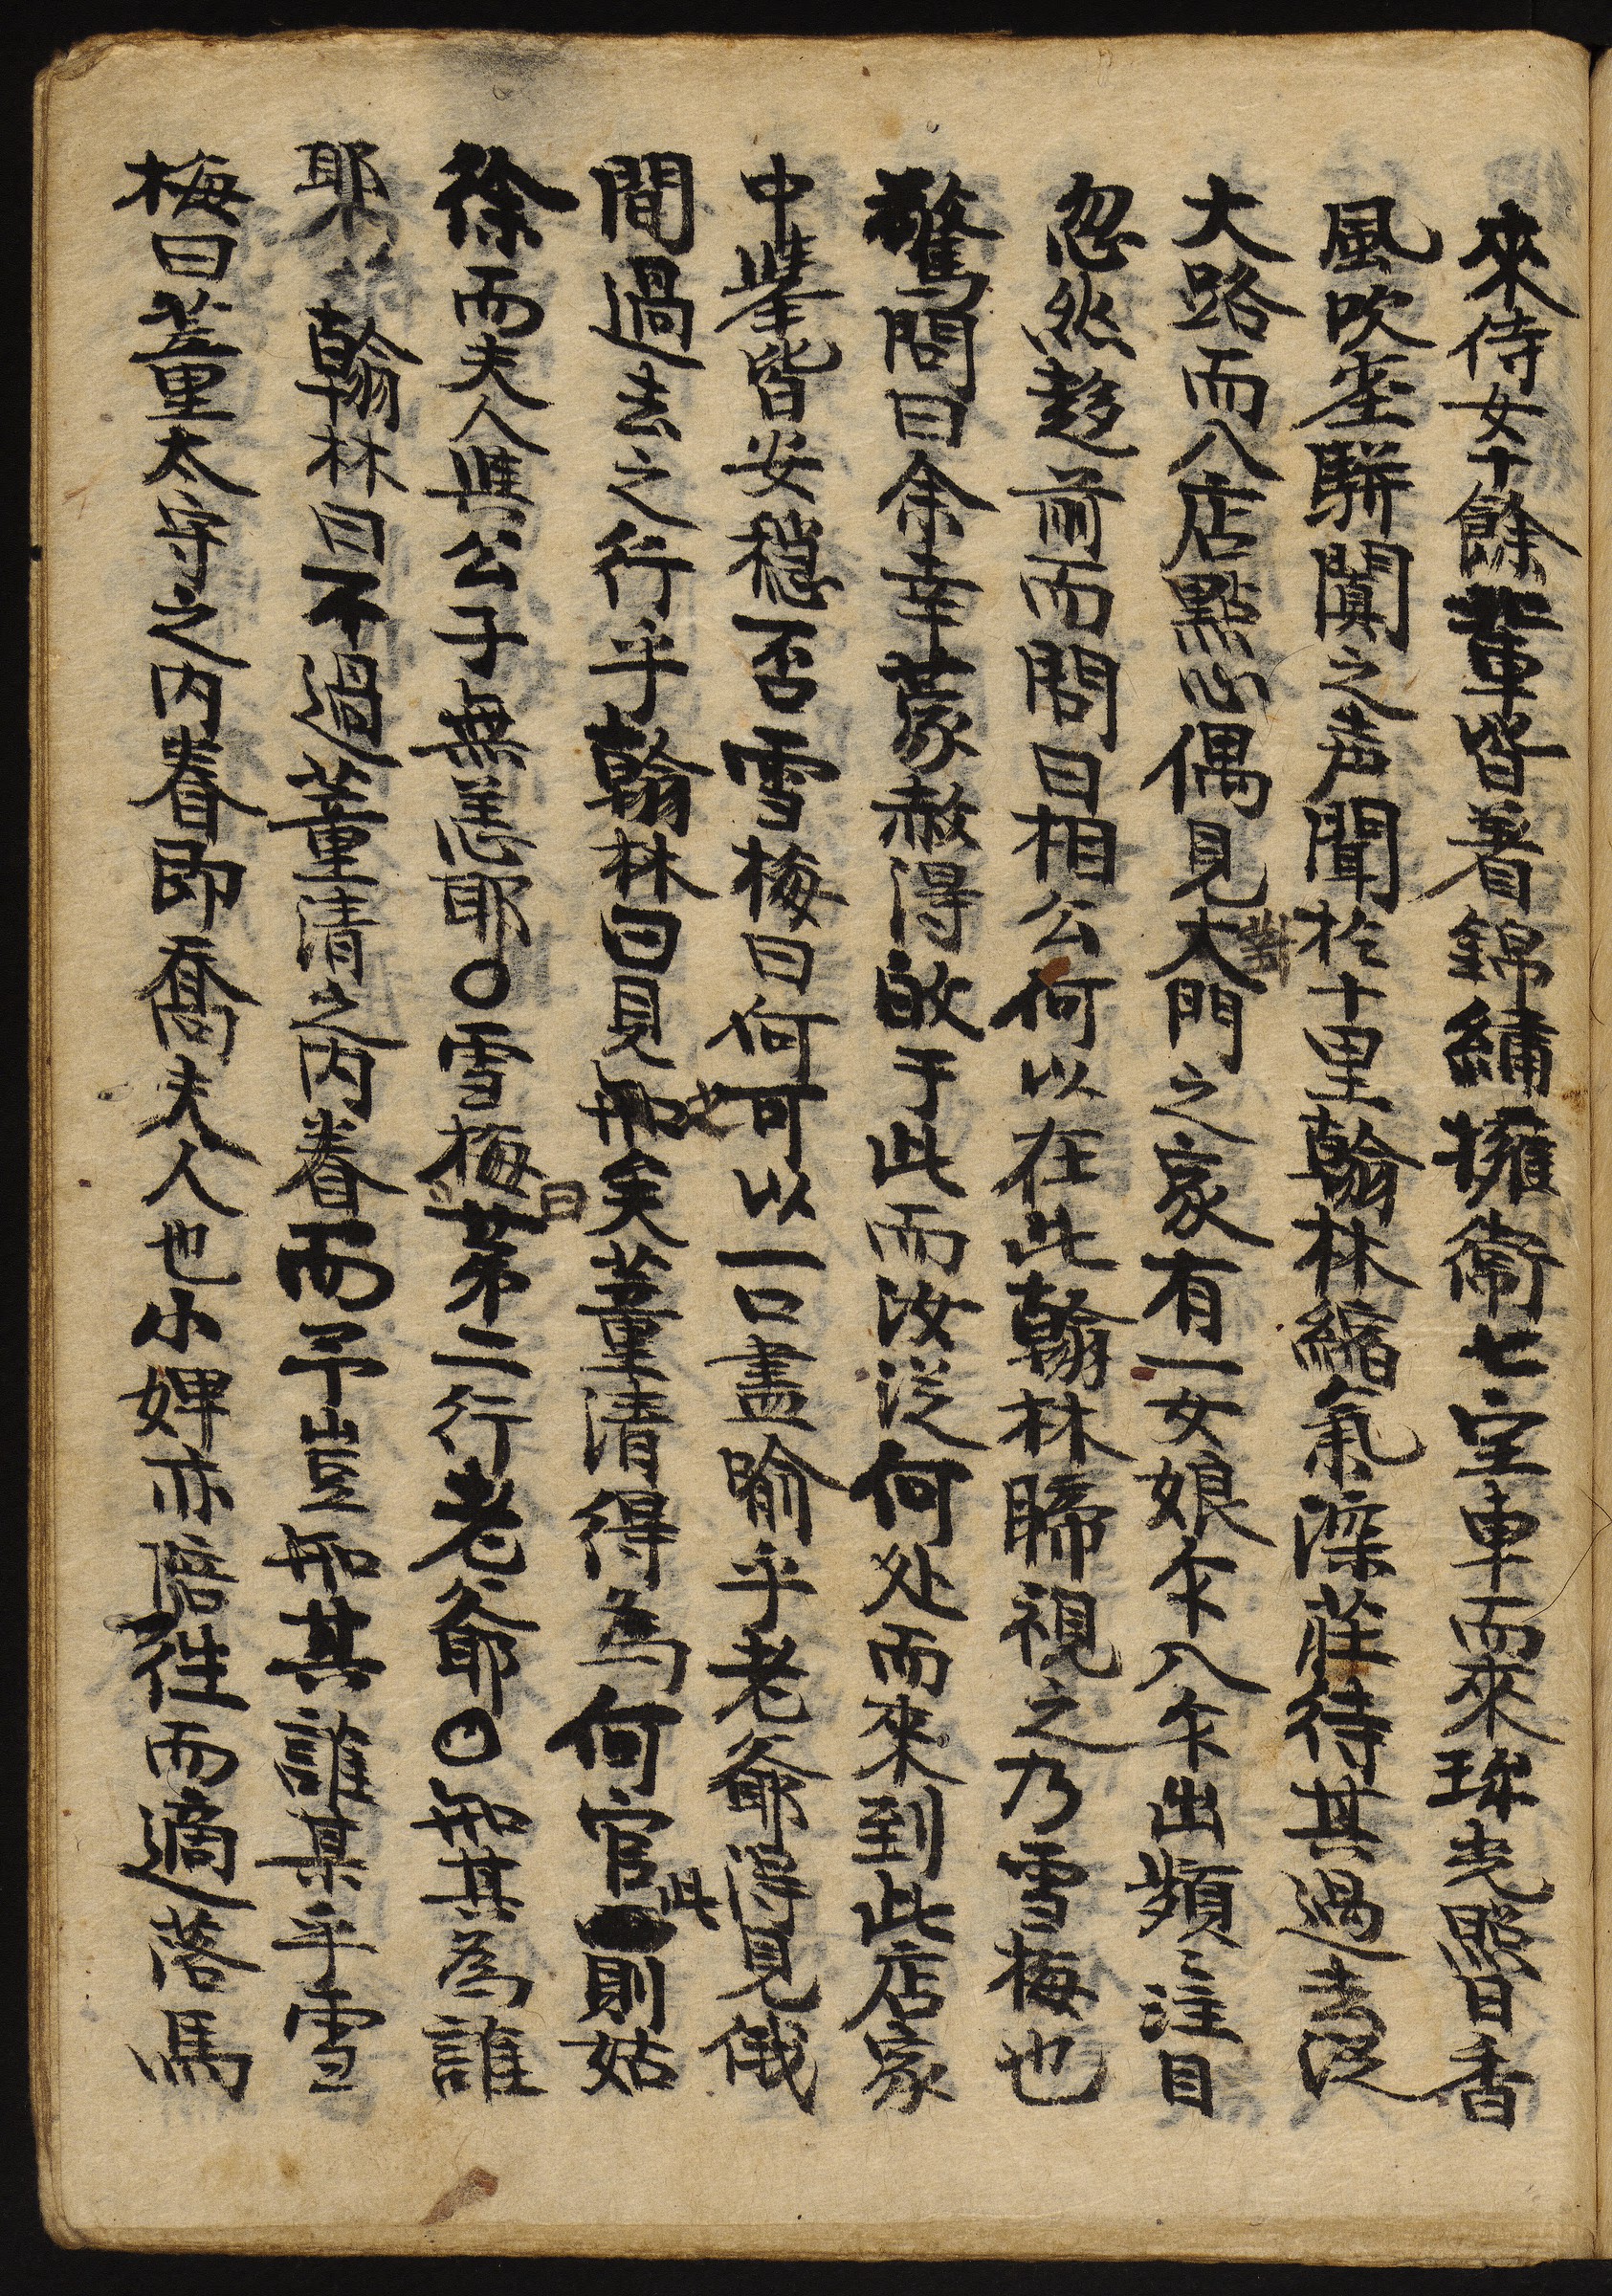 來侍女十餘輩皆着錦繡擁衛七宝車而來珠光照日香
風吹塵騈闐之声聞於十里翰林縮氣深莊待其過去從
大路而入店點心偶見對大門之家有一女娘乍入乍出頻〻注目
忽然趍前而問曰相公何以在此翰林睇視之乃雪梅也
驚問曰余幸蒙赦得啟于此而汝從何処而來到此店家
中挙皆安穩否雪梅曰何可以一口盡喻乎老爺得見俄
間過去之行乎翰林曰見之知矣董清得為何官此則姑
徐而夫人與公子無恙耶○雪梅曰第二行老爺○知其為誰
耶 翰林曰不過董清之内眷而予豈知其誰某乎雪
梅曰董太守之内眷即喬夫人也小婢亦陪往而適落馬